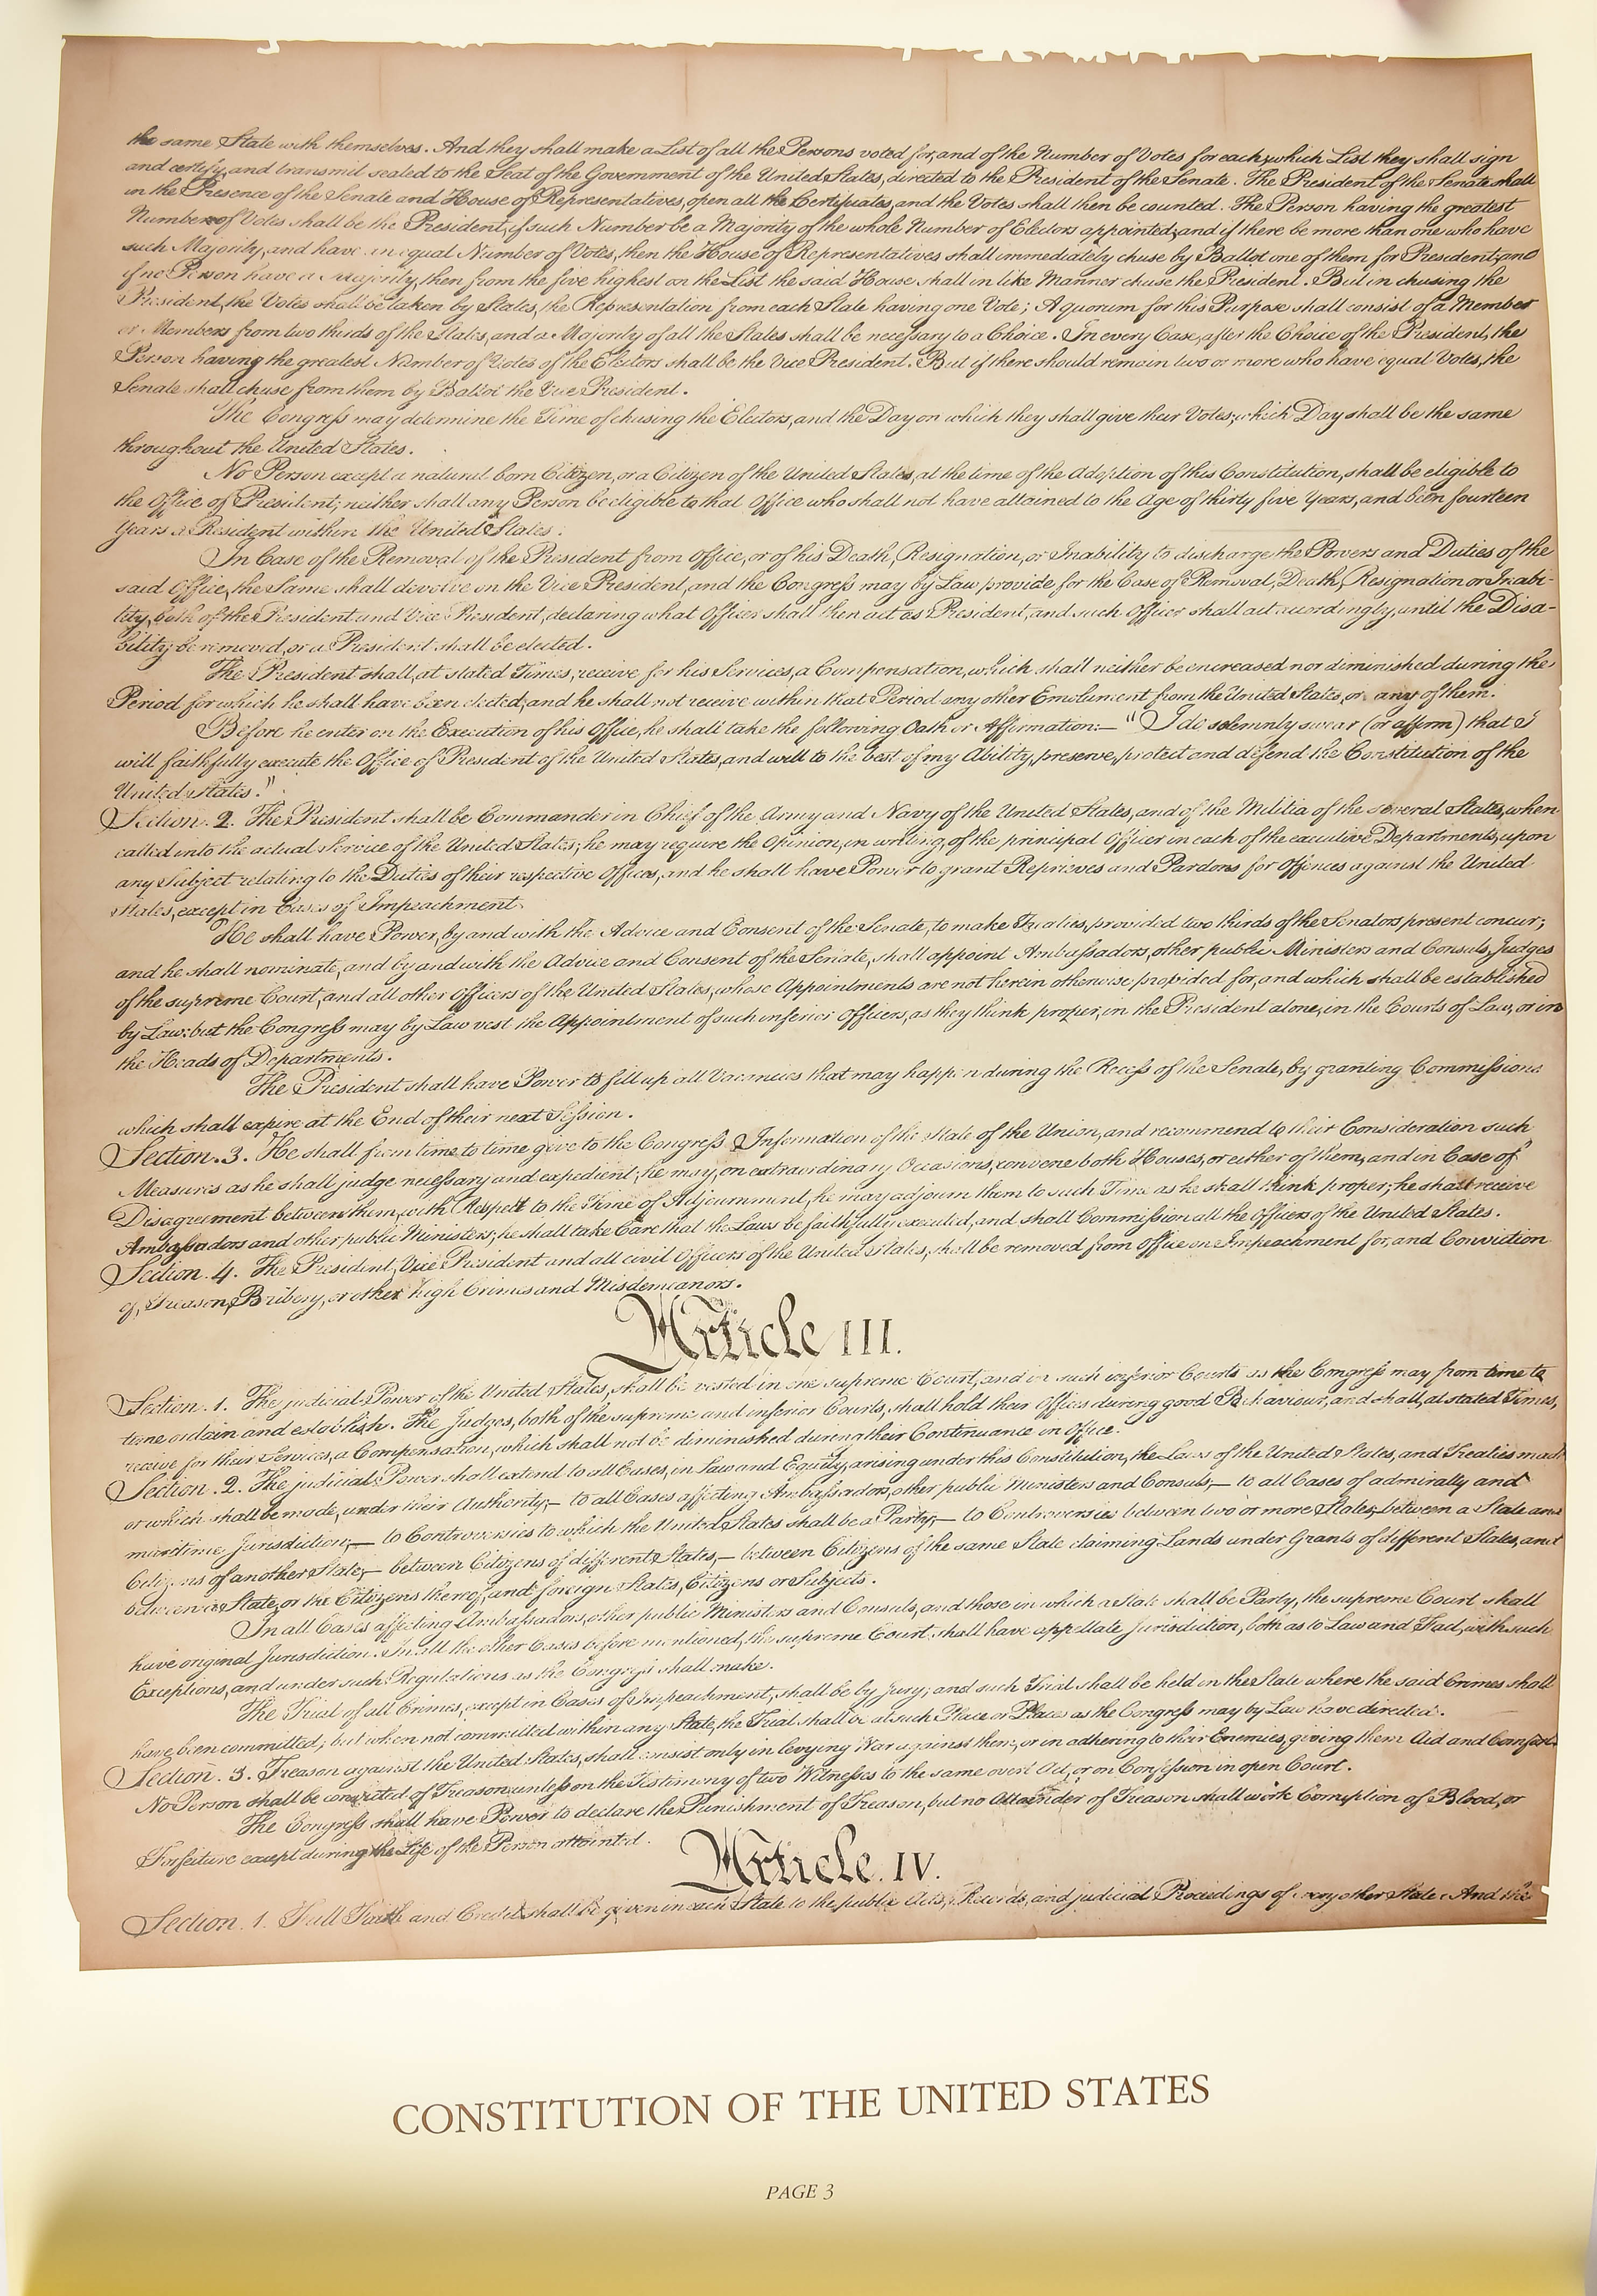 the same State with themselves. And they shall make a List of all the Persons voted for, and of the Number of Votes for each; which List they shall sign
and certify, and transmit sealed to the Seat of the Government of the United States, directed to the President of the Senate. The President of the Senate shall
in the Presence of the Senate and House of Representatives, open all the Certificates, and the Votes shall then be counted. The Person having the greatest
Number of Votes shall be the President, if such Number be a Majority of the whole Number of Electors appointed; and if there be more than one who have
such Majority, and have an equal Number of Votes, then the House of Representatives shall immediately chuse by Ballot one of them for President; and
if no Person have a Majority, then from the five highest on the List the said House shall in like Manner chuse the President. But in chusing the
President, the Votes shall be taken by States, the Representation from each State having one Vote; A quorum for this Purpose shall consist of a Member
or Members from two thirds of the States, and a Majority of all the States shall be necessary to a Choice. In every Case, after the Choice of the President, the
Person having the greatest Number of Votes of the Electors shall be the Vice President. But if there should remain two or more who have equal Votes, the
Senate shall chuse from them by Ballot the Vice President.
The Congress may determine the Time of chusing the Electors, and the Day on which they shall give their Votes; which Day shall be the same
throughout the United States.
No Person except a natural born Citizen, or a Citizen of the United States, at the time of the Adoption of this Constitution, shall be eligible to
the Office of President; neither shall any Person be eligible to that Office who shall not have attained to the Age of thirty five Years, and been fourteen
Years a Resident within the United States.
In Case of the Removal of the President from Office, or of his Death, Resignation, or Inability to discharge the Powers and Duties of the
said Office, the Same shall devolve on the Vice President, and the Congress may by Law provide for the Case of Removal, Death, Resignation or Inabi-
lity, both of the President and Vice President, declaring what Officer shall then act as President, and such Officer shall act accordingly, until the Disa-
bility be removed, or a President shall be elected.
The President shall, at stated Times, receive for his Services, a Compensation, which shall neither be encreased nor diminished during the
Period for which he shall have been elected, and he shall not receive within that Period any other Emolument from the United States, or any of them.
Before he enter on the Execution of his Office, he shall take the following Oath or Affirmation:— "I do solemnly swear (or affirm) that I
will faithfully execute the Office of President of the United States, and will to the best of my Ability, preserve, protect and defend the Constitution of the
United States."
Section. 2. The President shall be Commander in Chief of the Army and Navy of the United States, and of the Militia of the several States, when
called into the actual Service of the United States; he may require the Opinion, in writing, of the principal Officer in each of the executive Departments, upon
any Subject relating to the Duties of their respective Offices, and he shall have Power to grant Reprieves and Pardons for Offences against the United
States, except in Cases of Impeachment.
He shall have Power, by and with the Advice and Consent of the Senate, to make Treaties, provided two thirds of the Senators present concur;
and he shall nominate, and by and with the Advice and Consent of the Senate, shall appoint Ambassadors, other public Ministers and Consuls, Judges
of the supreme Court, and all other Officers of the United States, whose Appointments are not herein otherwise provided for, and which shall be established
by Law: but the Congress may by Law vest the Appointment of such inferior Officers, as they think proper, in the President alone, in the Courts of Law, or in
the Heads of Departments.
The President shall have Power to fill up all Vacancies that may happen during the Recess of the Senate, by granting Commissions
which shall expire at the End of their next Session.
Section. 3. He shall from time to time give to the Congress Information of the State of the Union, and recommend to their Consideration such
Measures as he shall judge necessary and expedient; he may, on extraordinary Occasions, convene both Houses, or either of them, and in Case of
Disagreement between them, with Respect to the Time of Adjournment, he may adjourn them to such Time as he shall think proper; he shall receive
Ambassadors and other public Ministers; he shall take Care that the Laws be faithfully executed, and shall Commission all the Officers of the United States.
Section. 4. The President, Vice President and all civil Officers of the United States, shall be removed from Office on Impeachment for, and Conviction
of, Treason, Bribery, or other high Crimes and Misdemeanors.
Article III.
Section. 1. The judicial Power of the United States, shall be vested in one supreme Court, and in such inferior Courts as the Congress may from time to
time ordain and establish. The Judges, both of the supreme and inferior Courts, shall hold their Offices during good Behaviour, and shall, at stated Times,
receive for their Services, a Compensation, which shall not be diminished during their Continuance in Office.
Section. 2. The judicial Power shall extend to all Cases, in Law and Equity, arising under this Constitution, the Laws of the United States, and Treaties made
or which shall be made, under their Authority;— to all Cases affecting Ambassadors, other public Ministers and Consuls;— to all Cases of admiralty and
maritime Jurisdiction;— to Controversies to which the United States shall be a Party;— to Controversies between two or more States;— between a State and
Citizens of another State;— between Citizens of different States,— between Citizens of the same State claiming Lands under Grants of different States, and
between a State, or the Citizens thereof, and foreign States, Citizens or Subjects.
In all Cases affecting Ambassadors, other public Ministers and Consuls, and those in which a State shall be Party, the supreme Court shall
have original Jurisdiction. In all the other Cases before mentioned, the supreme Court shall have appellate Jurisdiction, both as to Law and Fact, with such
Exceptions, and under such Regulations as the Congress shall make.
The Trial of all Crimes, except in Cases of Impeachment, shall be by Jury; and such Trial shall be held in the State where the said Crimes shall
have been committed; but when not committed within any State, the Trial shall be at such Place or Places as the Congress may by Law have directed.
Section. 3. Treason against the United States, shall consist only in levying War against them, or in adhering to their Enemies, giving them Aid and Comfort.
No Person shall be convicted of Treason unless on the Testimony of two Witnesses to the same overt Act, or on Confession in open Court.
The Congress shall have Power to declare the Punishment of Treason, but no Attainder of Treason shall work Corruption of Blood, or
Forfeiture except during the Life of the Person attainted.
Article. IV.
Section. 1. Full Faith and Credit shall be given in each State to the public Acts, Records, and judicial Proceedings of every other State. And the
CONSTITUTION OF THE UNITED STATES
PAGE 3